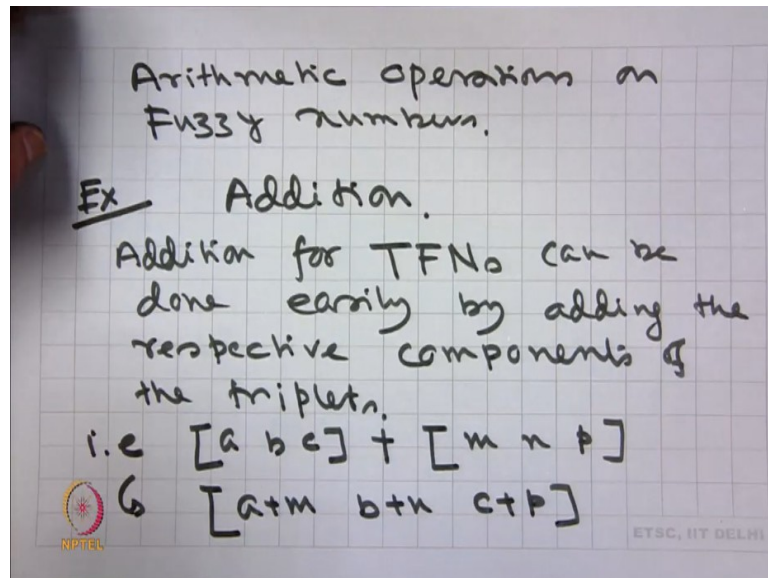 Arithmetic operations on
Fuzzy numbers.
Ex Addition.
Addition for TFNs can be
done easily by adding the
respective components of
the triplets.
i.e [a b c] + [m n p]
↳ [a+m b+n c+p]
NPTEL
ETSC, IIT DELHI